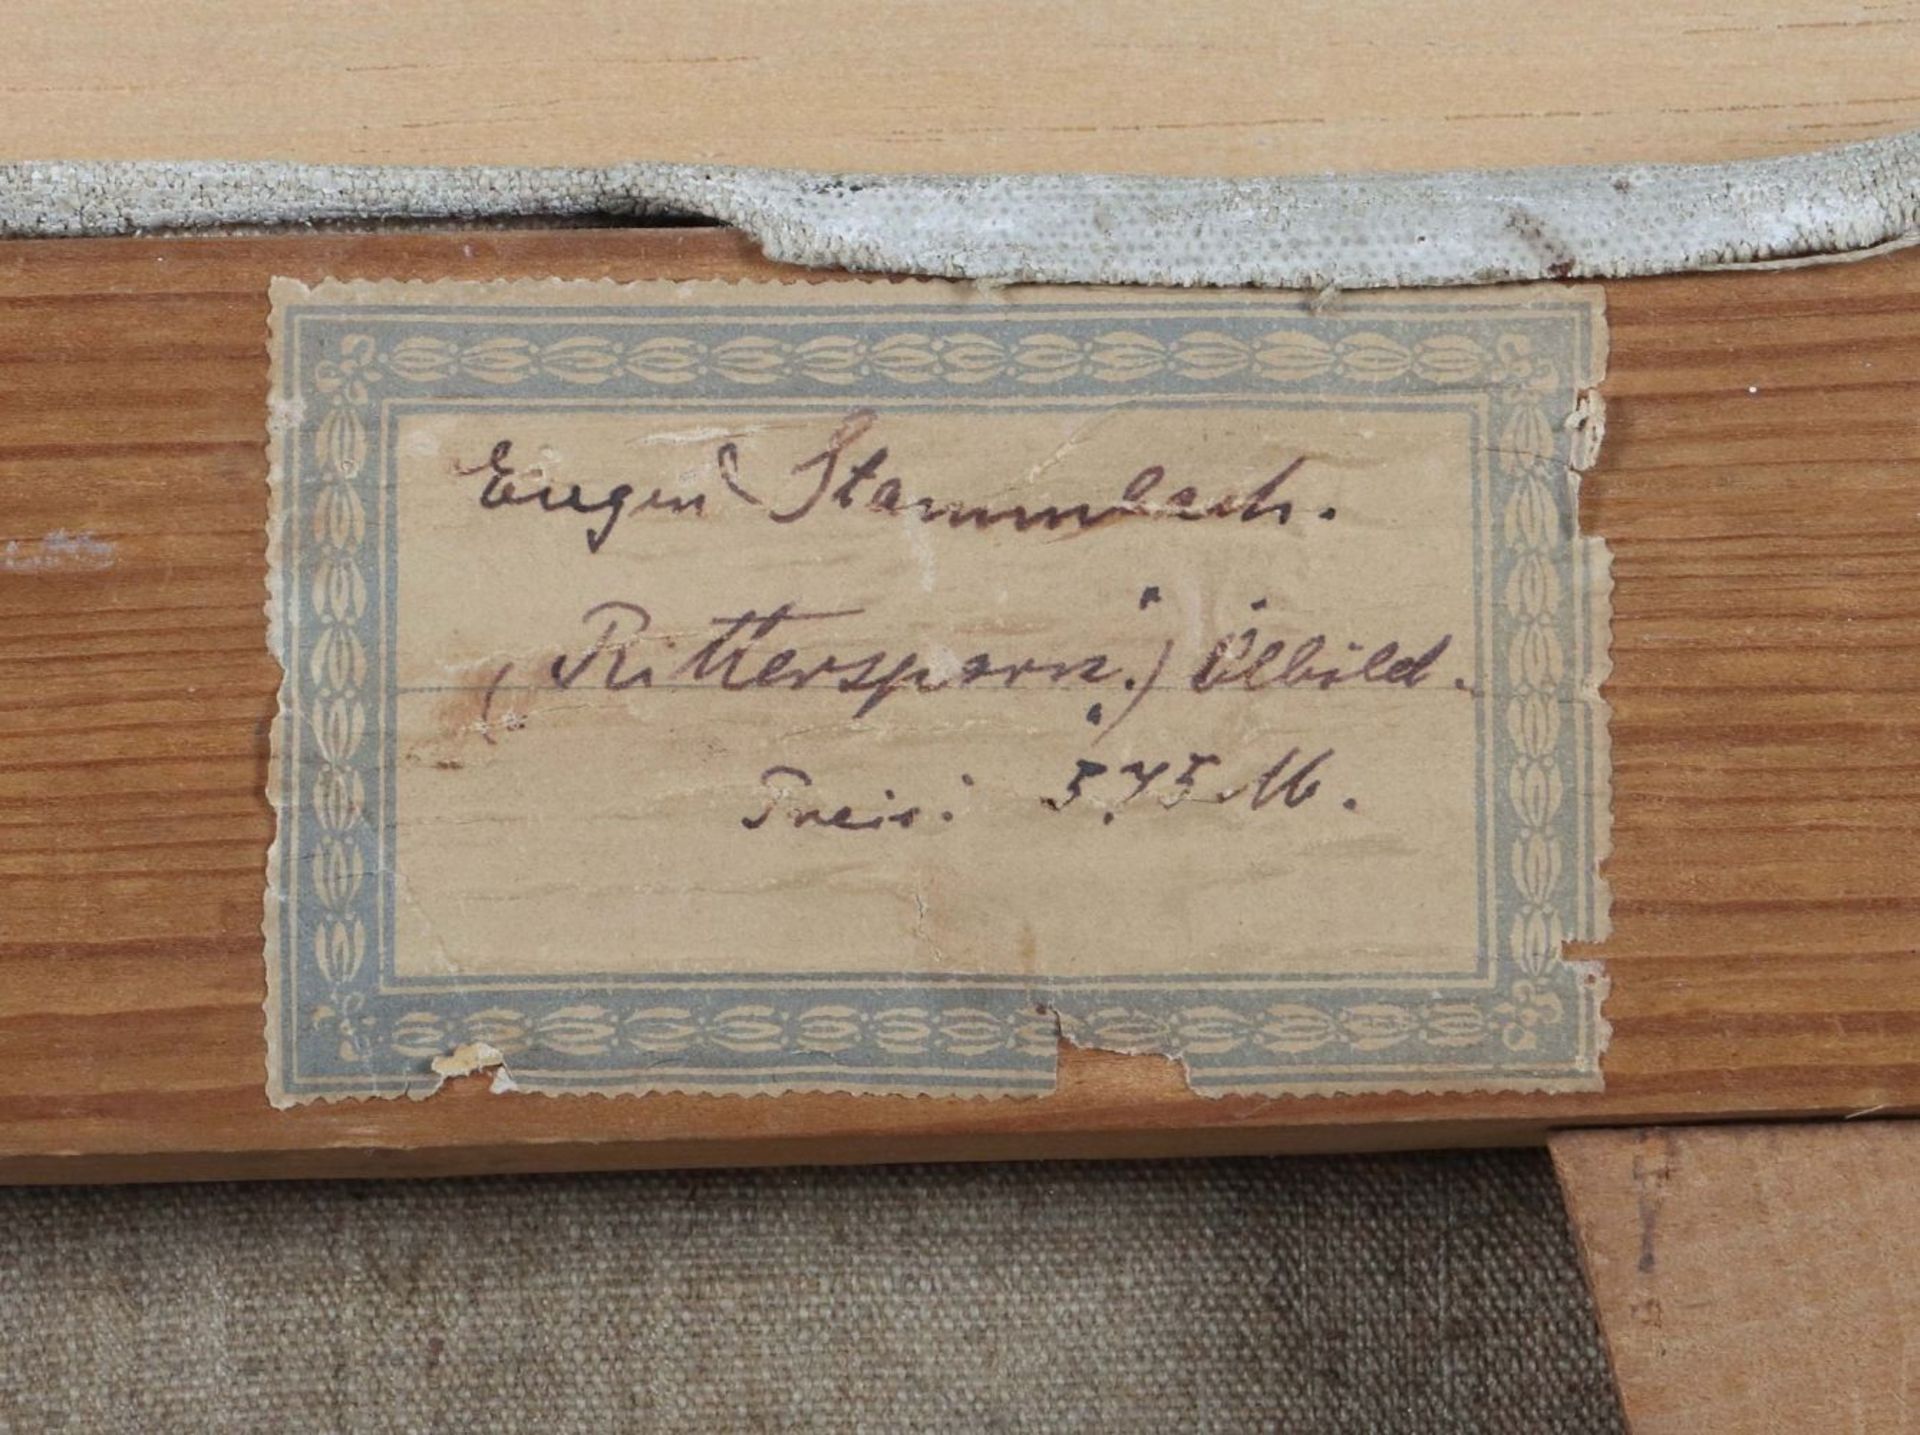 Eugen Stammbach.
(Rittersporn.) Ölbild.
Preis: 575 M.